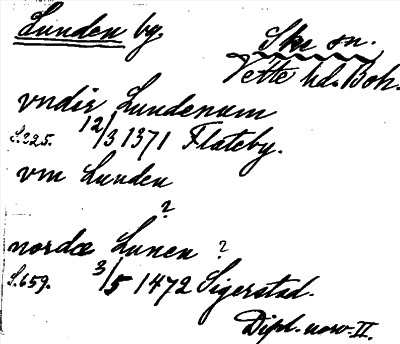 Lunden by.
Ske sn.
Vette hd. Boh.
vndir Lundenum
S.225. 12/3 1371 Flateby.
vm Lunden
?
nordæ Lunen ?
S.659. 3/5 1472 Sigerstad.
Dipl. norv. II.